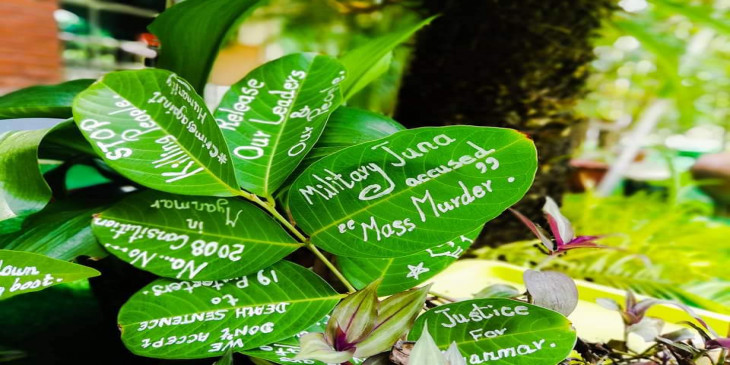 STOP
Killing People
#crime against
Humanity
Release
Our Leaders
&
Our
Military Juna
accused
"Mass Murder"
Myanmar
in
2008 Constitution
No...
19 Protesters
to
DEATH SENTENCE
DON'T
WE ACCEPT
Justice
For
Myanmar.